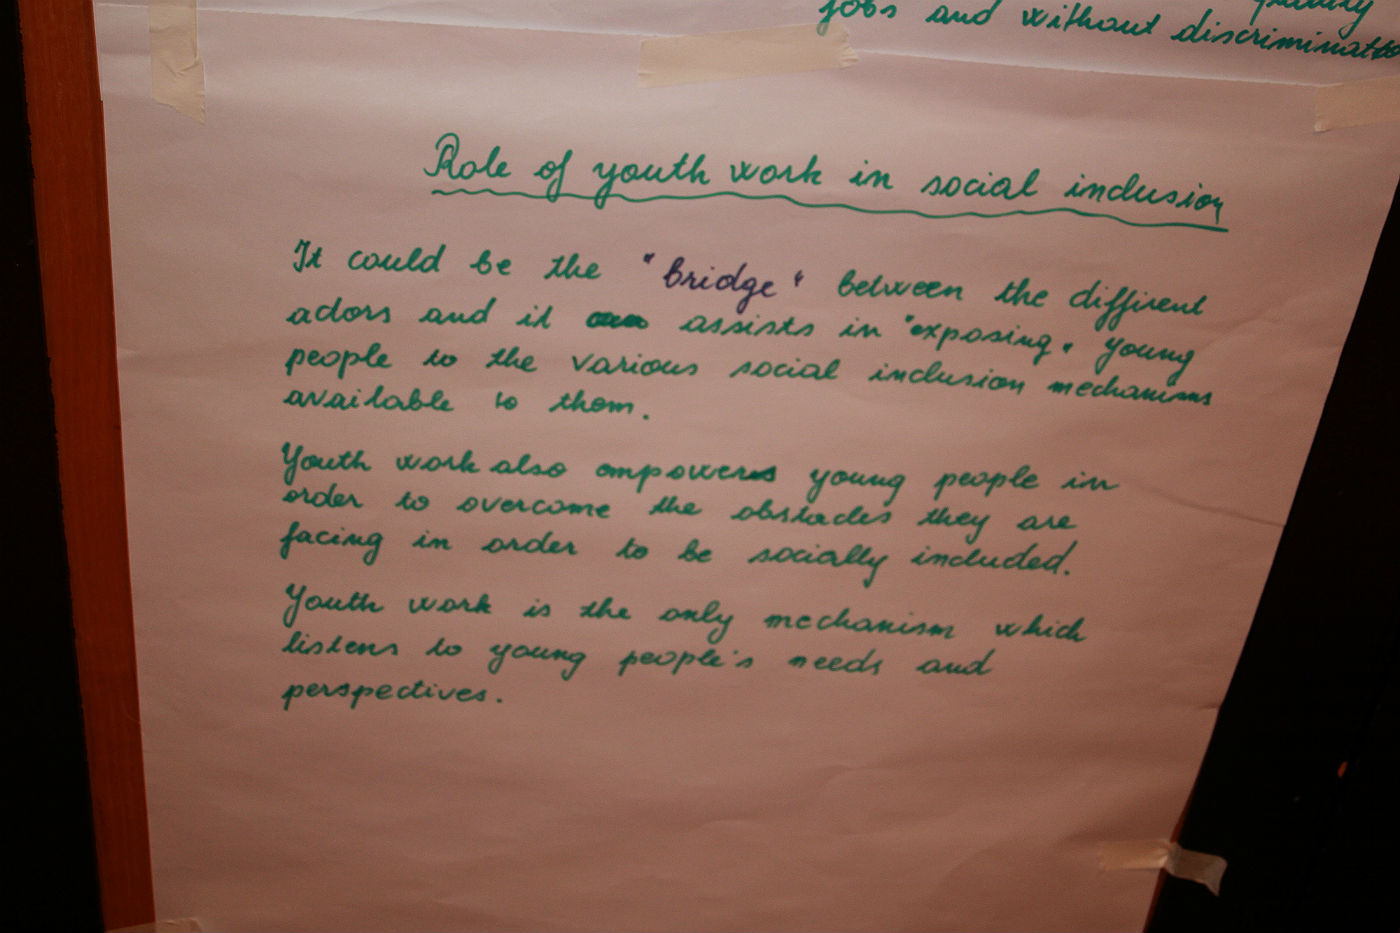 quality
jobs and without discrimination
Role of youth work in social inclusion
It could be the "bridge" between the different
actors and it assists in "exposing" young
people to the various social inclusion mechanisms
available to them.
Youth work also empowers young people in
order to overcome the obstacles they are
facing in order to be socially included.
Youth work is the only mechanism which
listens to young people's needs and
perspectives.